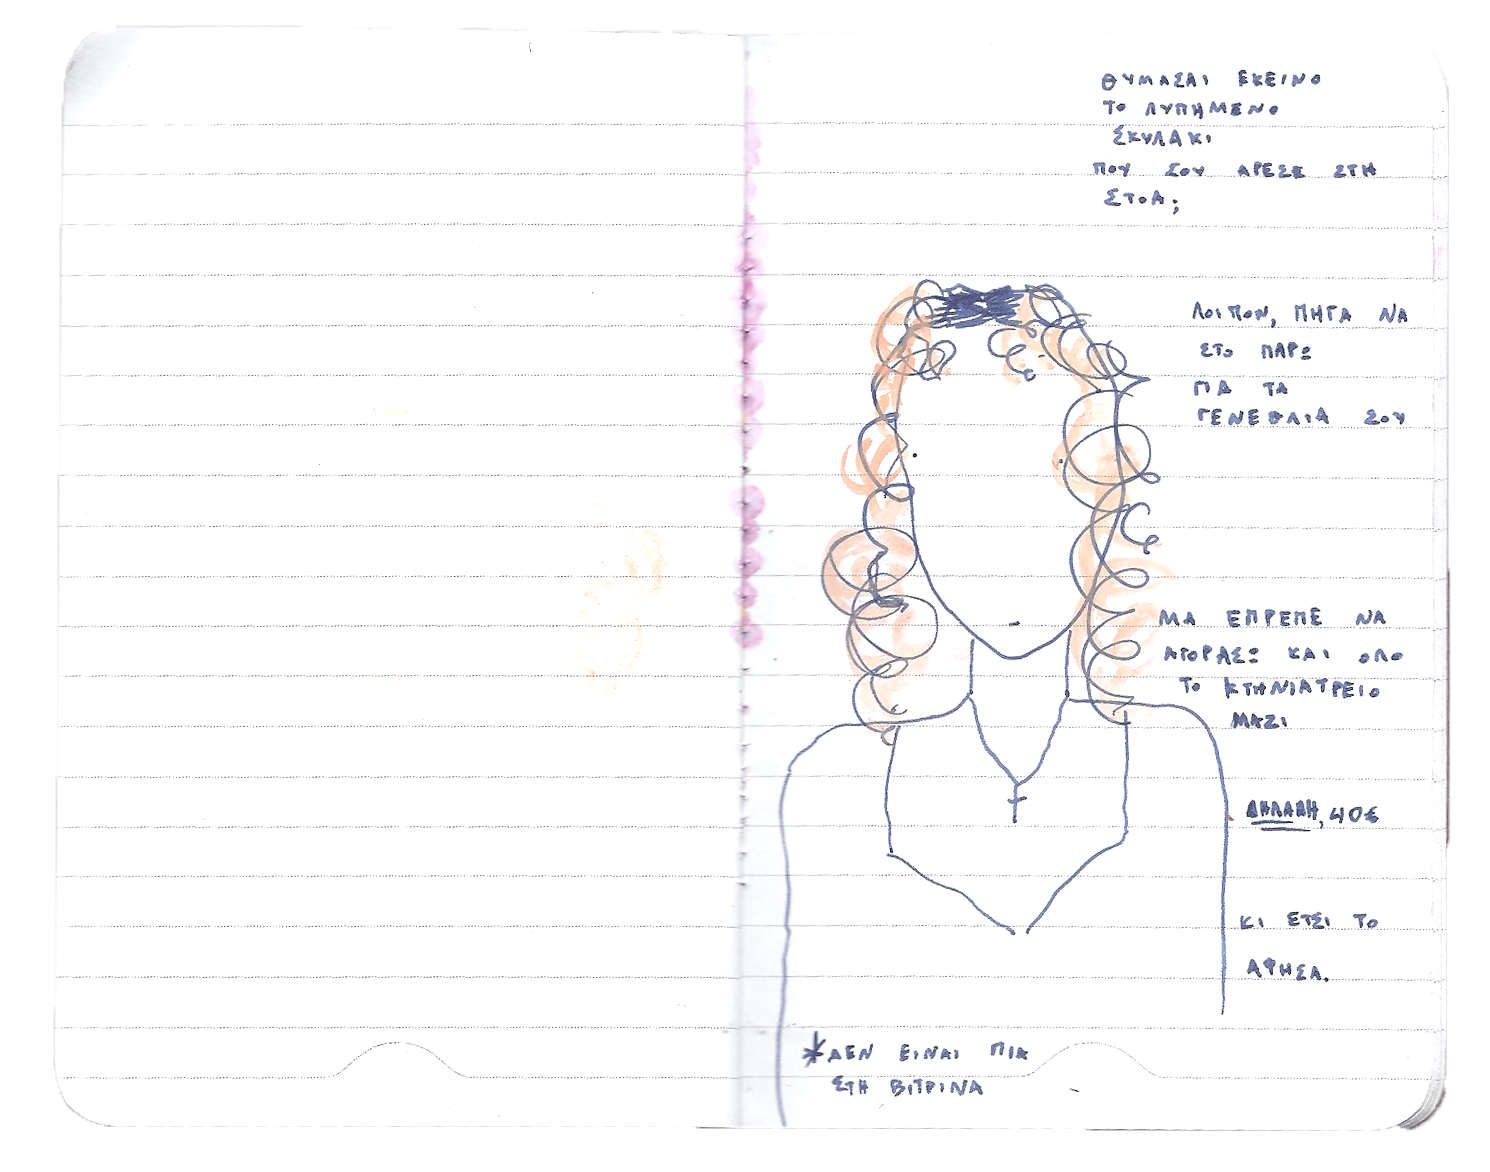 ΘΥΜΑΣΑΙ ΕΚΕΙΝΟ
ΤΟ ΛΥΠΗΜΕΝΟ
ΣΚΥΛΑΚΙ
ΠΟΥ ΣΟΥ ΑΡΕΣΕ ΣΤΗ
ΣΤΟΑ;
ΛΟΙΠΟΝ, ΠΗΓΑ ΝΑ
ΣΤΟ ΠΑΡΩ
ΓΙΑ ΤΑ
ΓΕΝΕΘΛΙΑ ΣΟΥ
ΜΑ ΕΠΡΕΠΕ ΝΑ
ΑΓΟΡΑΣΩ ΚΑΙ ΟΛΟ
ΤΟ ΚΤΗΝΙΑΤΡΕΙΟ
ΜΑΖΙ
ΔΗΛΑΔΗ, 40€
ΚΙ ΕΤΣΙ ΤΟ
ΑΦΗΣΑ.
*ΔΕΝ ΕΙΝΑΙ ΠΙΑ
ΣΤΗ ΒΙΤΡΙΝΑ